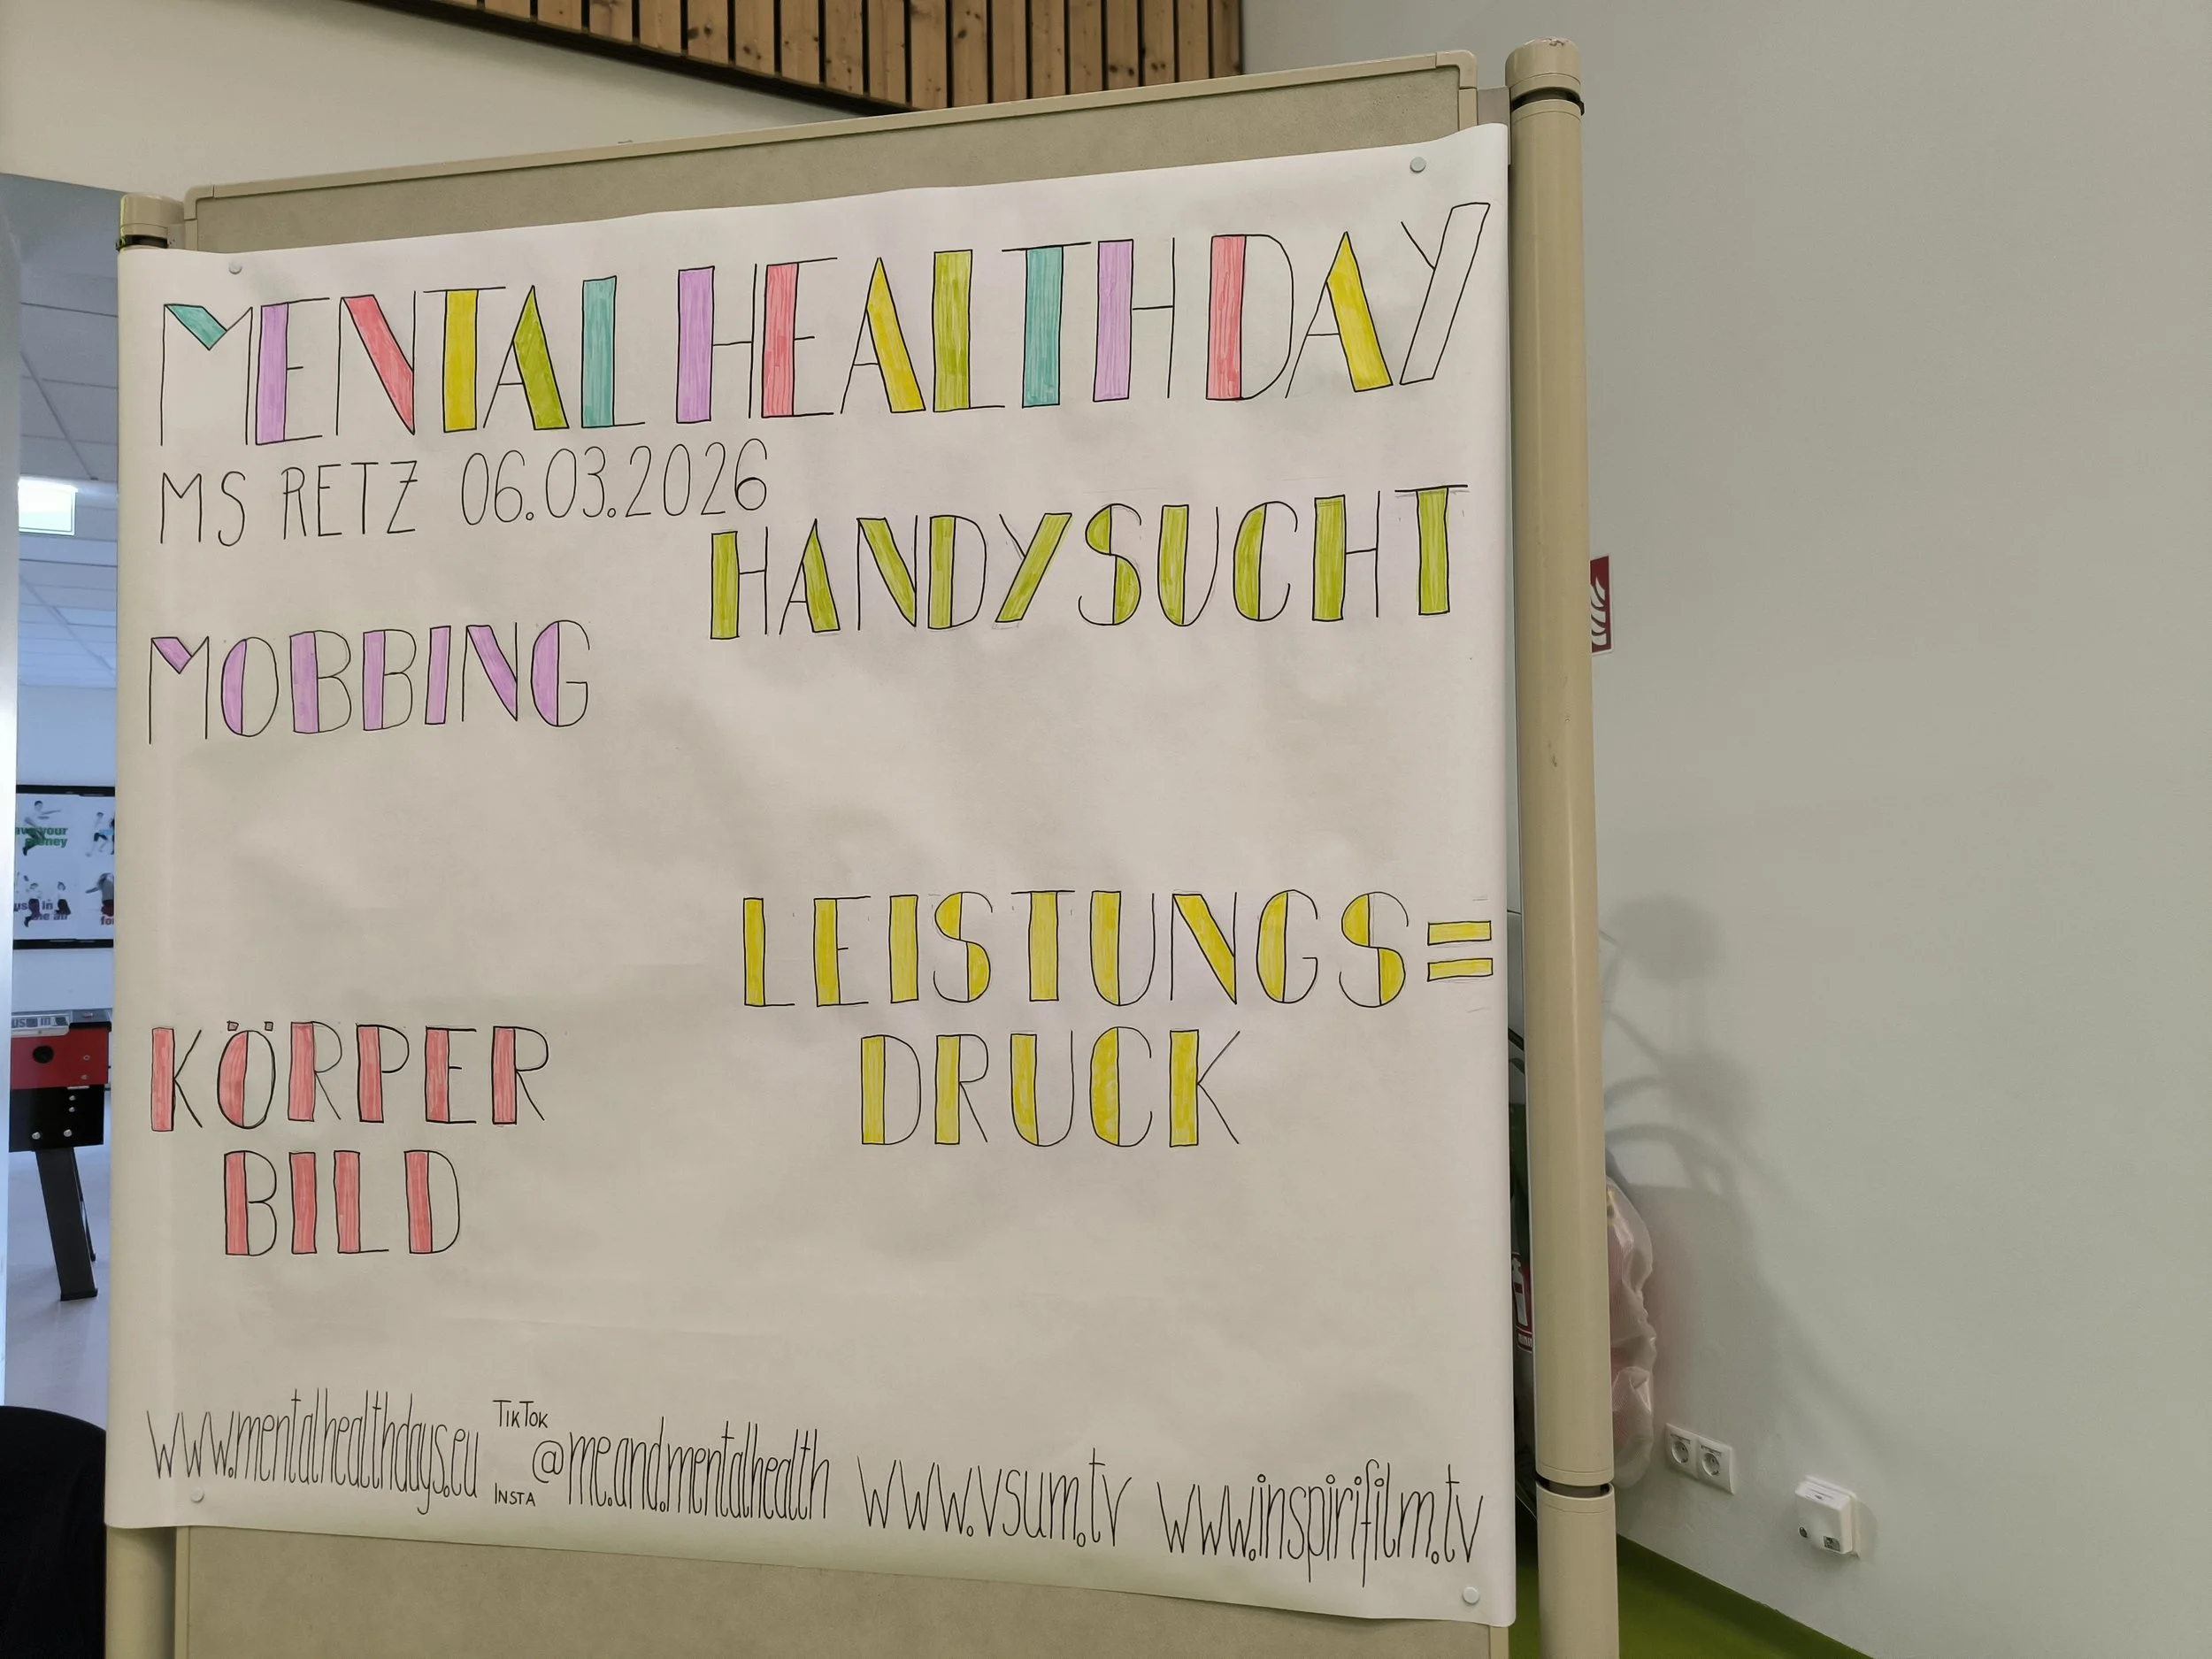 MENTAL HEALTH DAY
MS RETZ 06.03.2026
HANDYSUCHT
MOBBING
LEISTUNGS=
DRUCK
KÖRPER
BILD
www.mentalhealthdays.eu
TIKTOK
INSTA
@me.and.mentalhealth
www.vsum.tv
www.inspirifilm.tv
your
use in